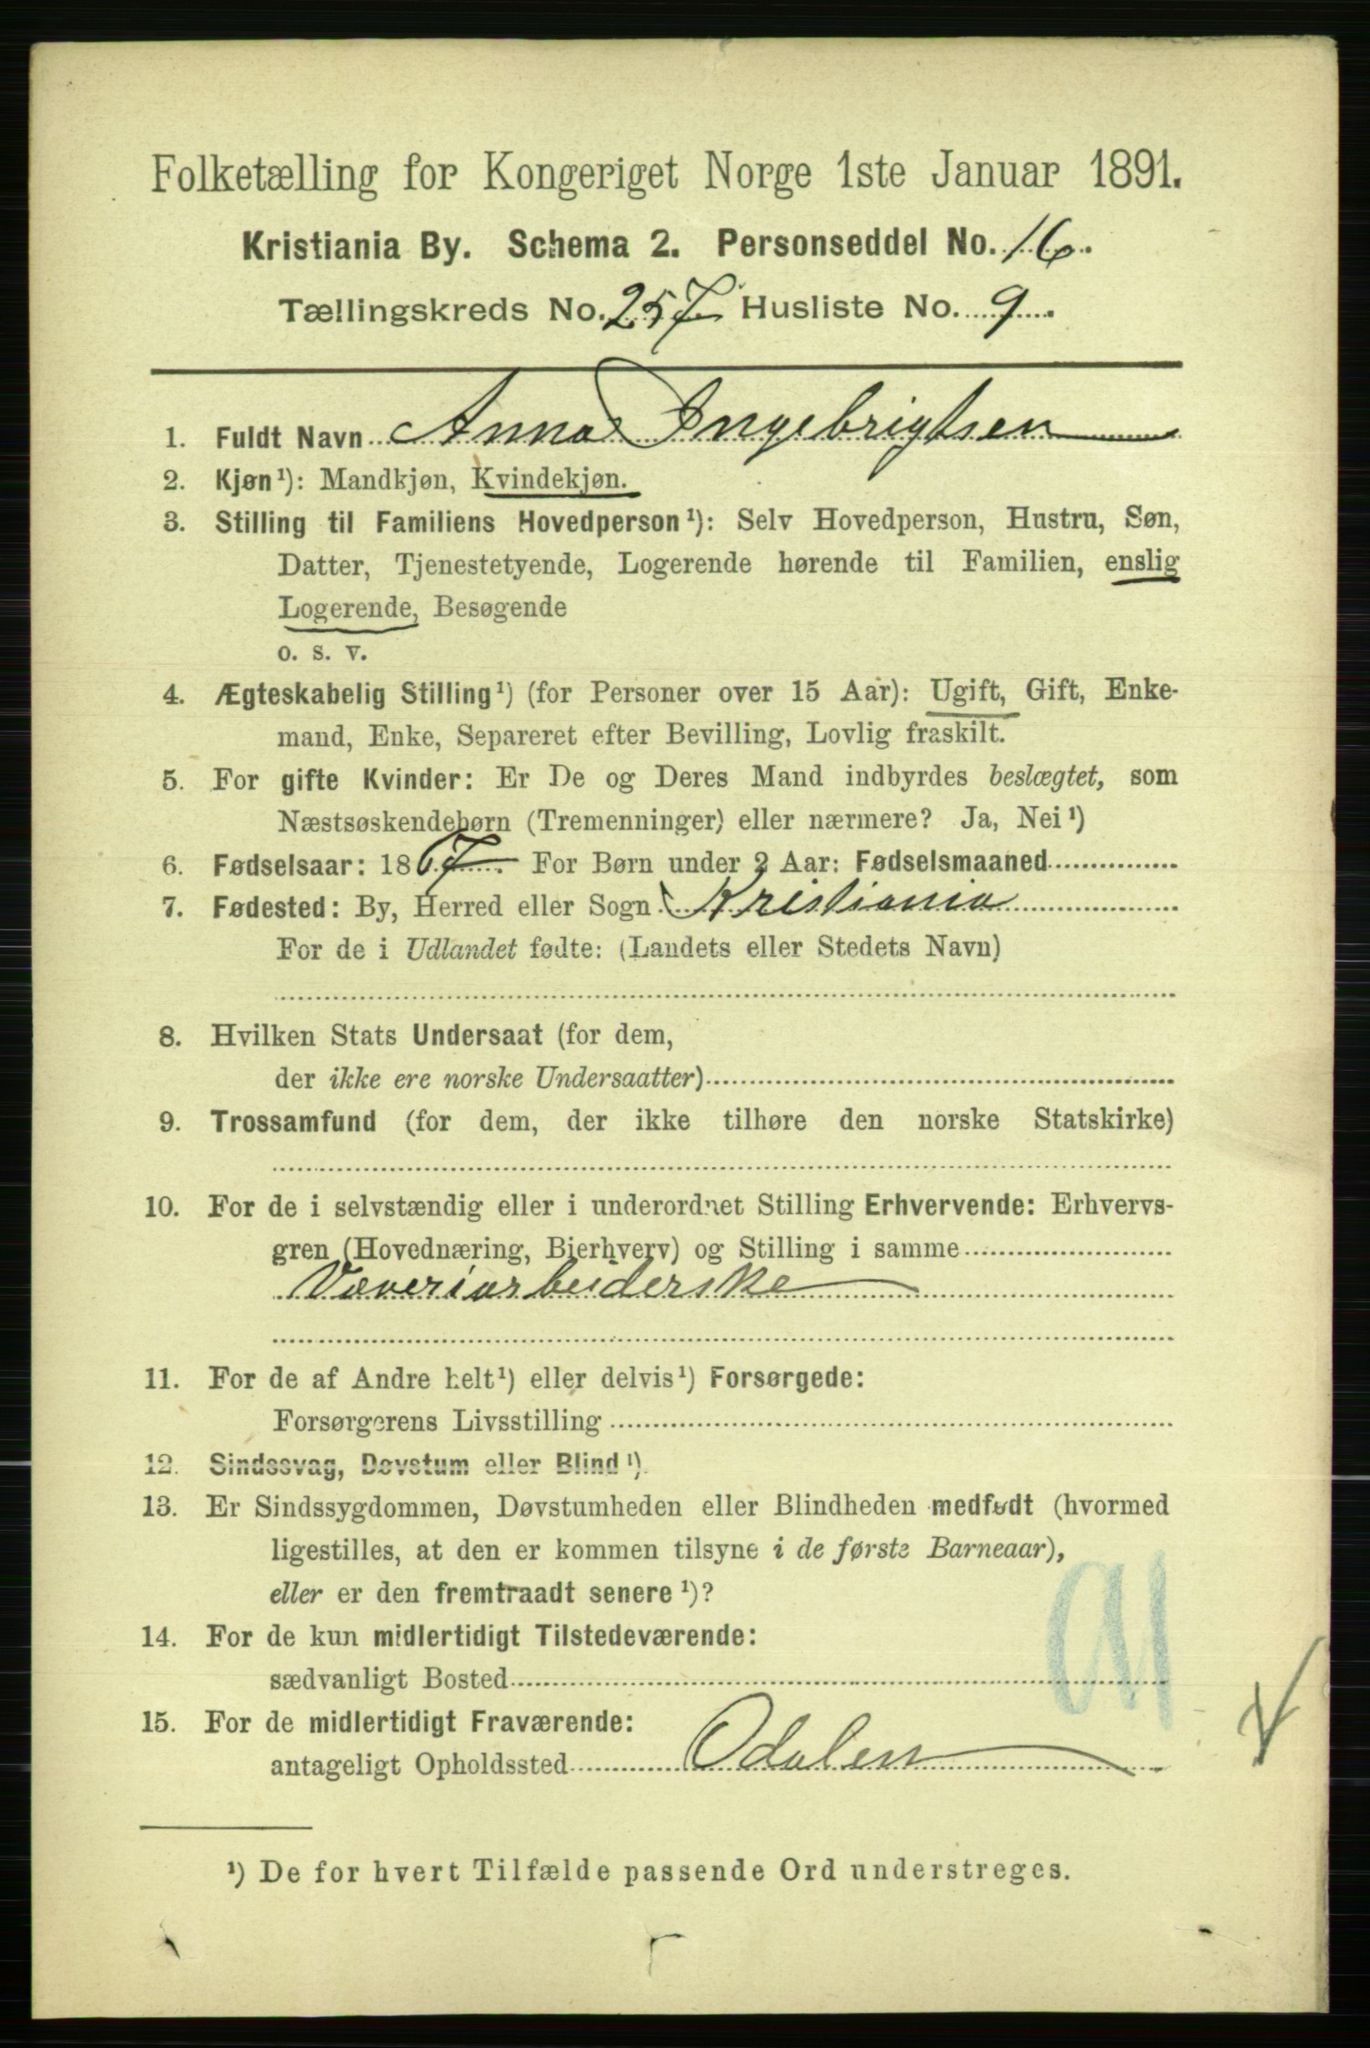 Folketælling for Kongeriget Norge 1ste Januar 1891.
Kristiania By. Schema 2. Personseddel No. 16.
Tællingskreds No. 257 Husliste No. 9.
1. Fuldt Navn Anna Ingebrigtsen
2. Kjøn¹): Mandkjøn, Kvindekjøn.
3. Stilling til Familiens Hovedperson¹): Selv Hovedperson, Hustru, Søn,
Datter, Tjenestetyende, Logerende hørende til Familien, enslig
Logerende, Besøgende
o. s. v.
4. Ægteskabelig Stilling¹) (for Personer over 15 Aar): Ugift, Gift, Enke-
mand, Enke, Separeret efter Bevilling, Lovlig fraskilt.
5. For gifte Kvinder: Er De og Deres Mand indbyrdes beslægtet, som
Næstsøskendebørn (Tremenninger) eller nærmere? Ja, Nei¹)
6. Fødselsaar: 1867. For Børn under 2 Aar: Fødselsmaaned
7. Fødested: By, Herred eller Sogn Kristiania
For de i Udlandet fødte: (Landets eller Stedets Navn)
8. Hvilken Stats Undersaat (for dem,
der ikke ere norske Undersaatter)
9. Trossamfund (for dem, der ikke tilhøre den norske Statskirke)
10. For de i selvstændig eller i underordnet Stilling Erhvervende: Erhvervs-
gren (Hovednæring, Bierhverv) og Stilling i samme
Væveriarbeiderske
11. For de af Andre helt¹) eller delvis¹) Forsørgede:
Forsørgerens Livsstilling
12. Sindssvag, Døvstum eller Blind¹).
13. Er Sindssygdommen, Døvstumheden eller Blindheden medfødt (hvormed
ligestilles, at den er kommen tilsyne i de første Barneaar),
eller er den fremtraadt senere¹)?
14. For de kun midlertidigt Tilstedeværende:
sædvanligt Bosted
15. For de midlertidigt Fraværende:
antageligt Opholdssted Odalen
¹) De for hvert Tilfælde passende Ord understreges.